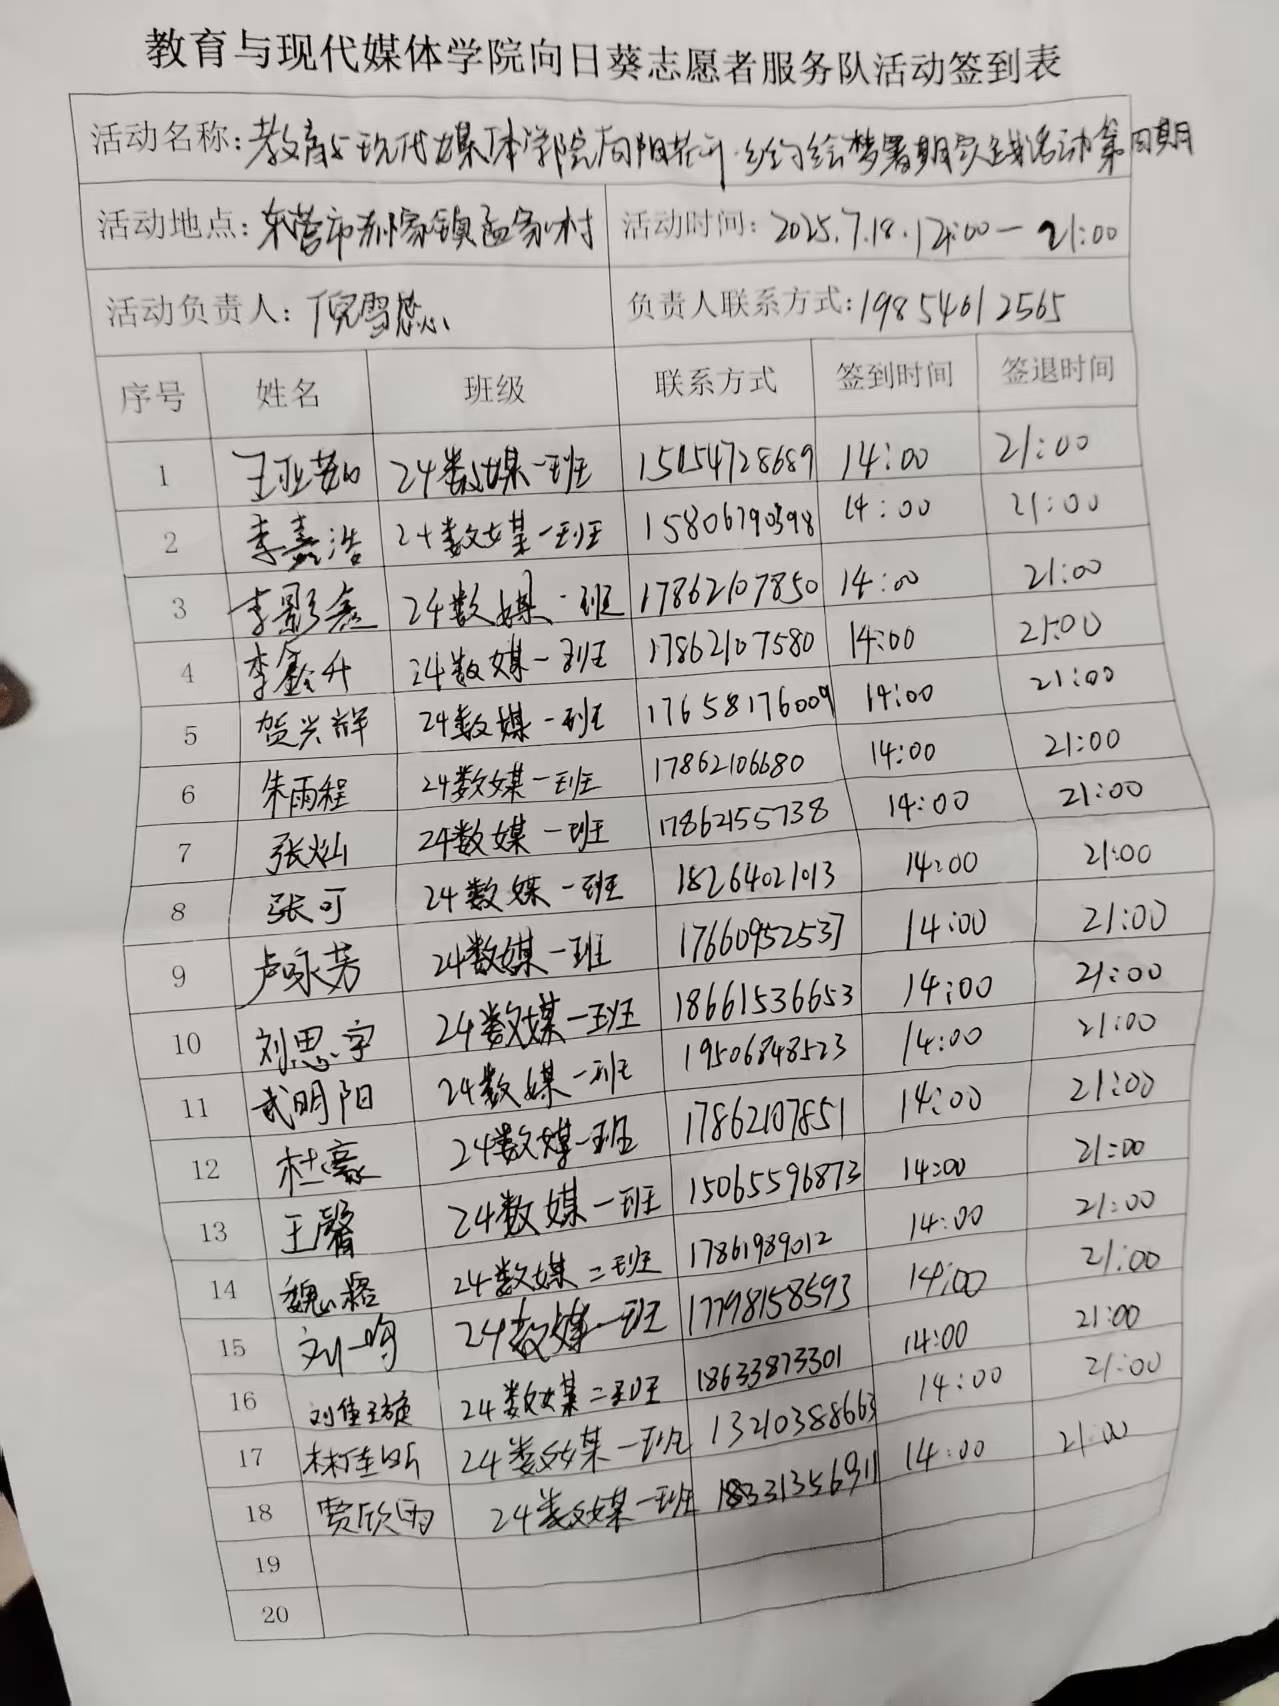 教育与现代媒体学院向日葵志愿者服务队活动签到表
活动名称:教育与现代媒体学院向阳花开·乡约绘梦暑期实践活动第四期
活动地点:东营市郝家镇孟家村 活动时间:2025.7.18.12:00—21:00
活动负责人:倪雪蕊 负责人联系方式:19854612565
序号 姓名 班级 联系方式 签到时间 签退时间
1 王亚茹 24数媒一班 15154728689 14:00 21:00
2 李嘉浩 24数媒一班 15806790398 14:00 21:00
3 李影鑫 24数媒一班 17862107850 14:00 21:00
4 李鑫升 24数媒一班 17862107580 14:00 21:00
5 贺兴辉 24数媒一班 17658176009 14:00 21:00
6 朱雨程 24数媒一班 17862106680 14:00 21:00
7 张灿 24数媒一班 17862155738 14:00 21:00
8 张可 24数媒一班 18264021013 14:00 21:00
9 卢咏芳 24数媒一班 17660952537 14:00 21:00
10 刘思宇 24数媒一班 18661536653 14:00 21:00
11 武明阳 24数媒一班 19506848523 14:00 21:00
12 杜豪 24数媒一班 17862107851 14:00 21:00
13 王馨 24数媒一班 15065596873 14:00 21:00
14 24数媒二班 17861989012 14:00 21:00
15 刘一鸣 24数媒一班 17798158593 14:00 21:00
16 刘佳璇 24数媒二班 18633873301 14:00 21:00
17 林佳昕 24数媒一班 13210388663 14:00 21:00
18 贾欣雨 24数媒一班 18331356911 14:00 21:00
19
20